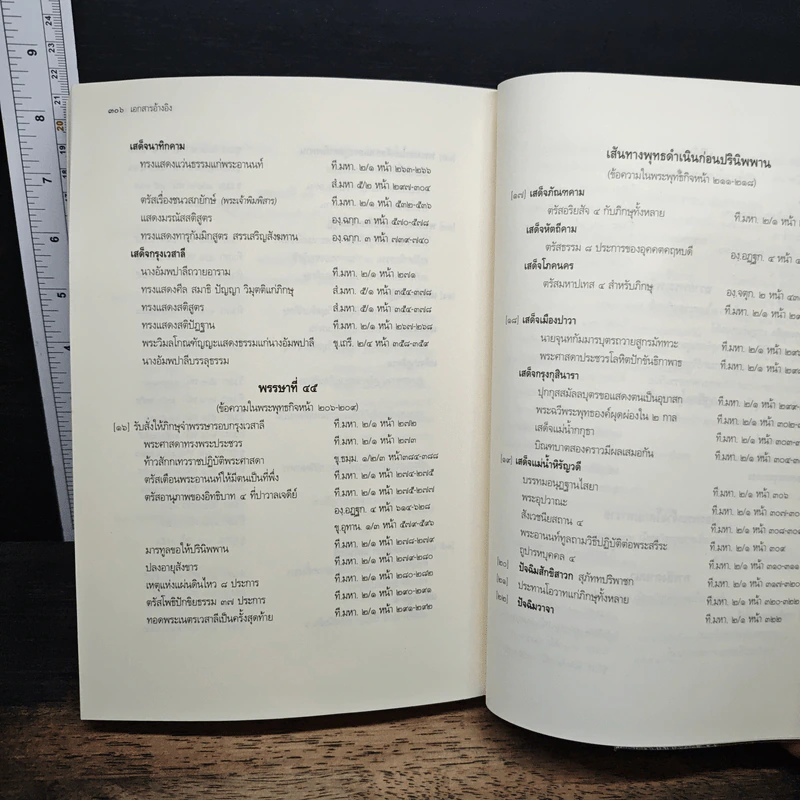 ๓๐๖ เอกสารอ้างอิง
เสด็จนาทิกคาม
ทรงแสดงแว่นธรรมแก่พระอานนท์ ที.มหา. ๒/๑ หน้า ๒๖๓-๒๖๖
สํ.มหา ๕/๒ ๒๙๗-๓๐๔
ตรัสเรื่องชนวสภยักษ์ (พระเจ้าพิมพิสาร) ที.มหา. ๒/๑ หน้า ๕๓๒-๕๓๖
แสดงมรณัสสติสูตร องฺ.ฉกฺก. ๓ หน้า ๕๗๐-๕๗๘
ทรงแสดงทารุกัมมิกสูตร สรรเสริญสังฆทาน องฺ.ฉกฺก. ๓ หน้า ๗๓๙-๗๔๐
เสด็จกรุงเวสาลี
นางอัมพปาลีถวายอาราม ที.มหา. ๒/๑ หน้า ๒๗๑
ทรงแสดงศีล สมาธิ ปัญญา วิมุตติแก่ภิกษุ สํ.มหา. ๕/๑ หน้า ๓๕๔-๓๗๘
ทรงแสดงสติสูตร สํ.มหา. ๕/๑ หน้า ๓๕๔-๓๗๘
ทรงแสดงสติปัฏฐาน ที.มหา. ๒/๑ หน้า ๒๖๗-๒๖๘
พระวิมลโกณฑัญญะแสดงธรรมแก่นางอัมพปาลี ขุ.เถรี. ๒/๔ หน้า ๓๕๘-๓๕๙
นางอัมพปาลีบรรลุธรรม
พรรษาที่ ๔๕
(ข้อความในพระพุทธกิจหน้า ๒๐๖-๒๐๙)
[๑๖] รับสั่งให้ภิกษุจำพรรษารอบกรุงเวสาลี ที.มหา. ๒/๑ หน้า ๒๗๒
พระศาสดาทรงพระประชวร ที.มหา. ๒/๑ หน้า ๒๗๓
ท้าวสักกเทวราชปฏิบัติพระศาสดา ขุ.ธมฺม. ๑/๒/๓ หน้า๓๘๔-๓๘๘
ตรัสเตือนพระอานนท์ให้มีตนเป็นที่พึ่ง ที.มหา. ๒/๑ หน้า ๒๗๔-๒๗๕
ตรัสอานุภาพของอิทธิบาท ๔ ที่ปาวาลเจดีย์ ที.มหา. ๒/๑ หน้า ๒๗๕-๒๗๗
องฺ.อฏฺฐก. ๔ หน้า ๖๑๔-๖๒๘
ขุ.อุทาน. ๑/๓ หน้า ๕๗๙-๕๙๖
มารทูลขอให้ปรินิพพาน ที.มหา. ๒/๑ หน้า ๒๗๘-๒๗๙
ปลงอายุสังขาร ที.มหา. ๒/๑ หน้า ๒๗๙-๒๘๐
เหตุแห่งแผ่นดินไหว ๘ ประการ ที.มหา. ๒/๑ หน้า ๒๘๐-๒๘๒
ตรัสโพธิปักขิยธรรม ๓๗ ประการ ที.มหา. ๒/๑ หน้า ๒๙๐-๒๙๑
ทอดพระเนตรเวสาลีเป็นครั้งสุดท้าย ที.มหา. ๒/๑ หน้า ๒๙๑-๒๙๒
เส้นทางพุทธดำเนินก่อนปรินิพพาน
(ข้อความในพระพุทธกิจหน้า ๒๑๑-๒๑๘)
[๑๗] เสด็จภัณฑคาม
ตรัสอริยสัจ ๔ กับภิกษุทั้งหลาย ที.มหา. ๒/๑ หน้า
เสด็จหัตถีคาม
ตรัสธรรม ๘ ประการของอุคคตคฤหบดี องฺ.อฏฺฐก. ๔ หน้า
เสด็จโภคนคร
ตรัสมหาปเทส ๔ สำหรับภิกษุ องฺ.จตุก. ๒ หน้า
ที.มหา. ๒/๑ หน้า
[๑๘] เสด็จเมืองปาวา
นายจุนทกัมมารบุตรถวายสูกรมัททวะ ที.มหา. ๒/๑ หน้า
พระศาสดาประชวรโลหิตปักขันธิกาพาธ ที.มหา. ๒/๑ หน้า
เสด็จกรุงกุสินารา
ปุกกุสมัลลบุตรขอแสดงตนเป็นอุบาสก ที.มหา. ๒/๑ หน้า
พระฉวีพระพุทธองค์ผุดผ่องใน ๒ กาล ที.มหา. ๒/๑ หน้า
เสด็จแม่น้ำกกุธา ที.มหา. ๒/๑ หน้า
บิณฑบาตสองคราวมีผลเสมอกัน ที.มหา. ๒/๑ หน้า
[๑๙] เสด็จแม่น้ำหิรัญวดี
บรรทมอนุฏฐานไสยา ที.มหา. ๒/๑ หน้า ๓๐๖
พระอุปวาณะ ที.มหา. ๒/๑ หน้า
สังเวชนียสถาน ๔ ที.มหา. ๒/๑ หน้า
พระอานนท์ทูลถามวิธีปฏิบัติต่อพระสรีระ ที.มหา. ๒/๑ หน้า ๓๐๙
ถูปารหบุคคล ๔ ที.มหา. ๒/๑ หน้า ๓๑๐-๓๑๑
[๒๐] ปัจฉิมสักขิสาวก สุภัททปริพาชก ที.มหา. ๒/๑ หน้า ๓๑๗-๓๒๐
[๒๑] ประทานโอวาทแก่ภิกษุทั้งหลาย ที.มหา. ๒/๑ หน้า ๓๒๐-๓๒๒
[๒๒] ปัจฉิมวาจา ที.มหา. ๒/๑ หน้า ๓๒๒